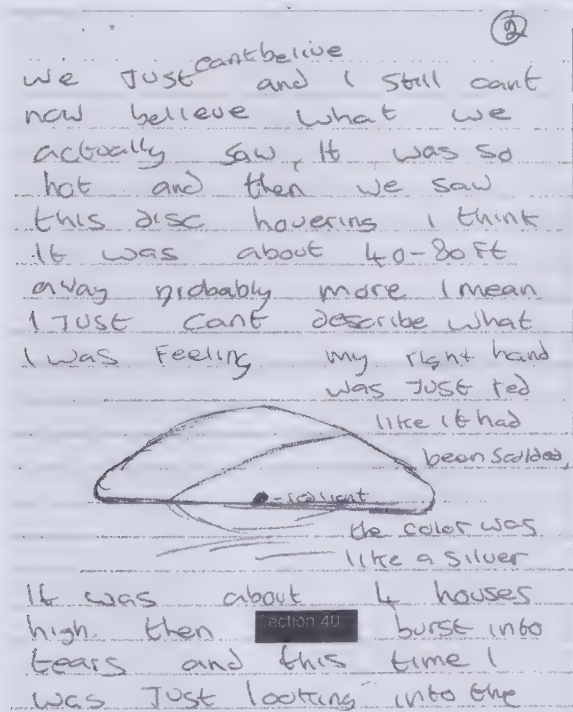 2
we JUST cantbelive and I still cant
now believe what we
actually saw, It was so
hot and then we saw
this disc hovering I think
It was about 40-80 Ft
away probably more I mean
I JUST cant describe what
I was Feeling my right hand
was JUST red
like it had
been scolded,
- red light
the color was
like a silver
It was about 4 houses
high then ection 40 burst into
tears and this time I
was JUST looking into the